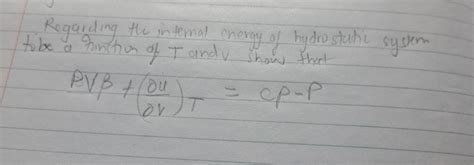 Regarding the internal energy of hydrostatic system
to be a function of T and V show that
PVβ + (∂U/∂V)_T = CP-P